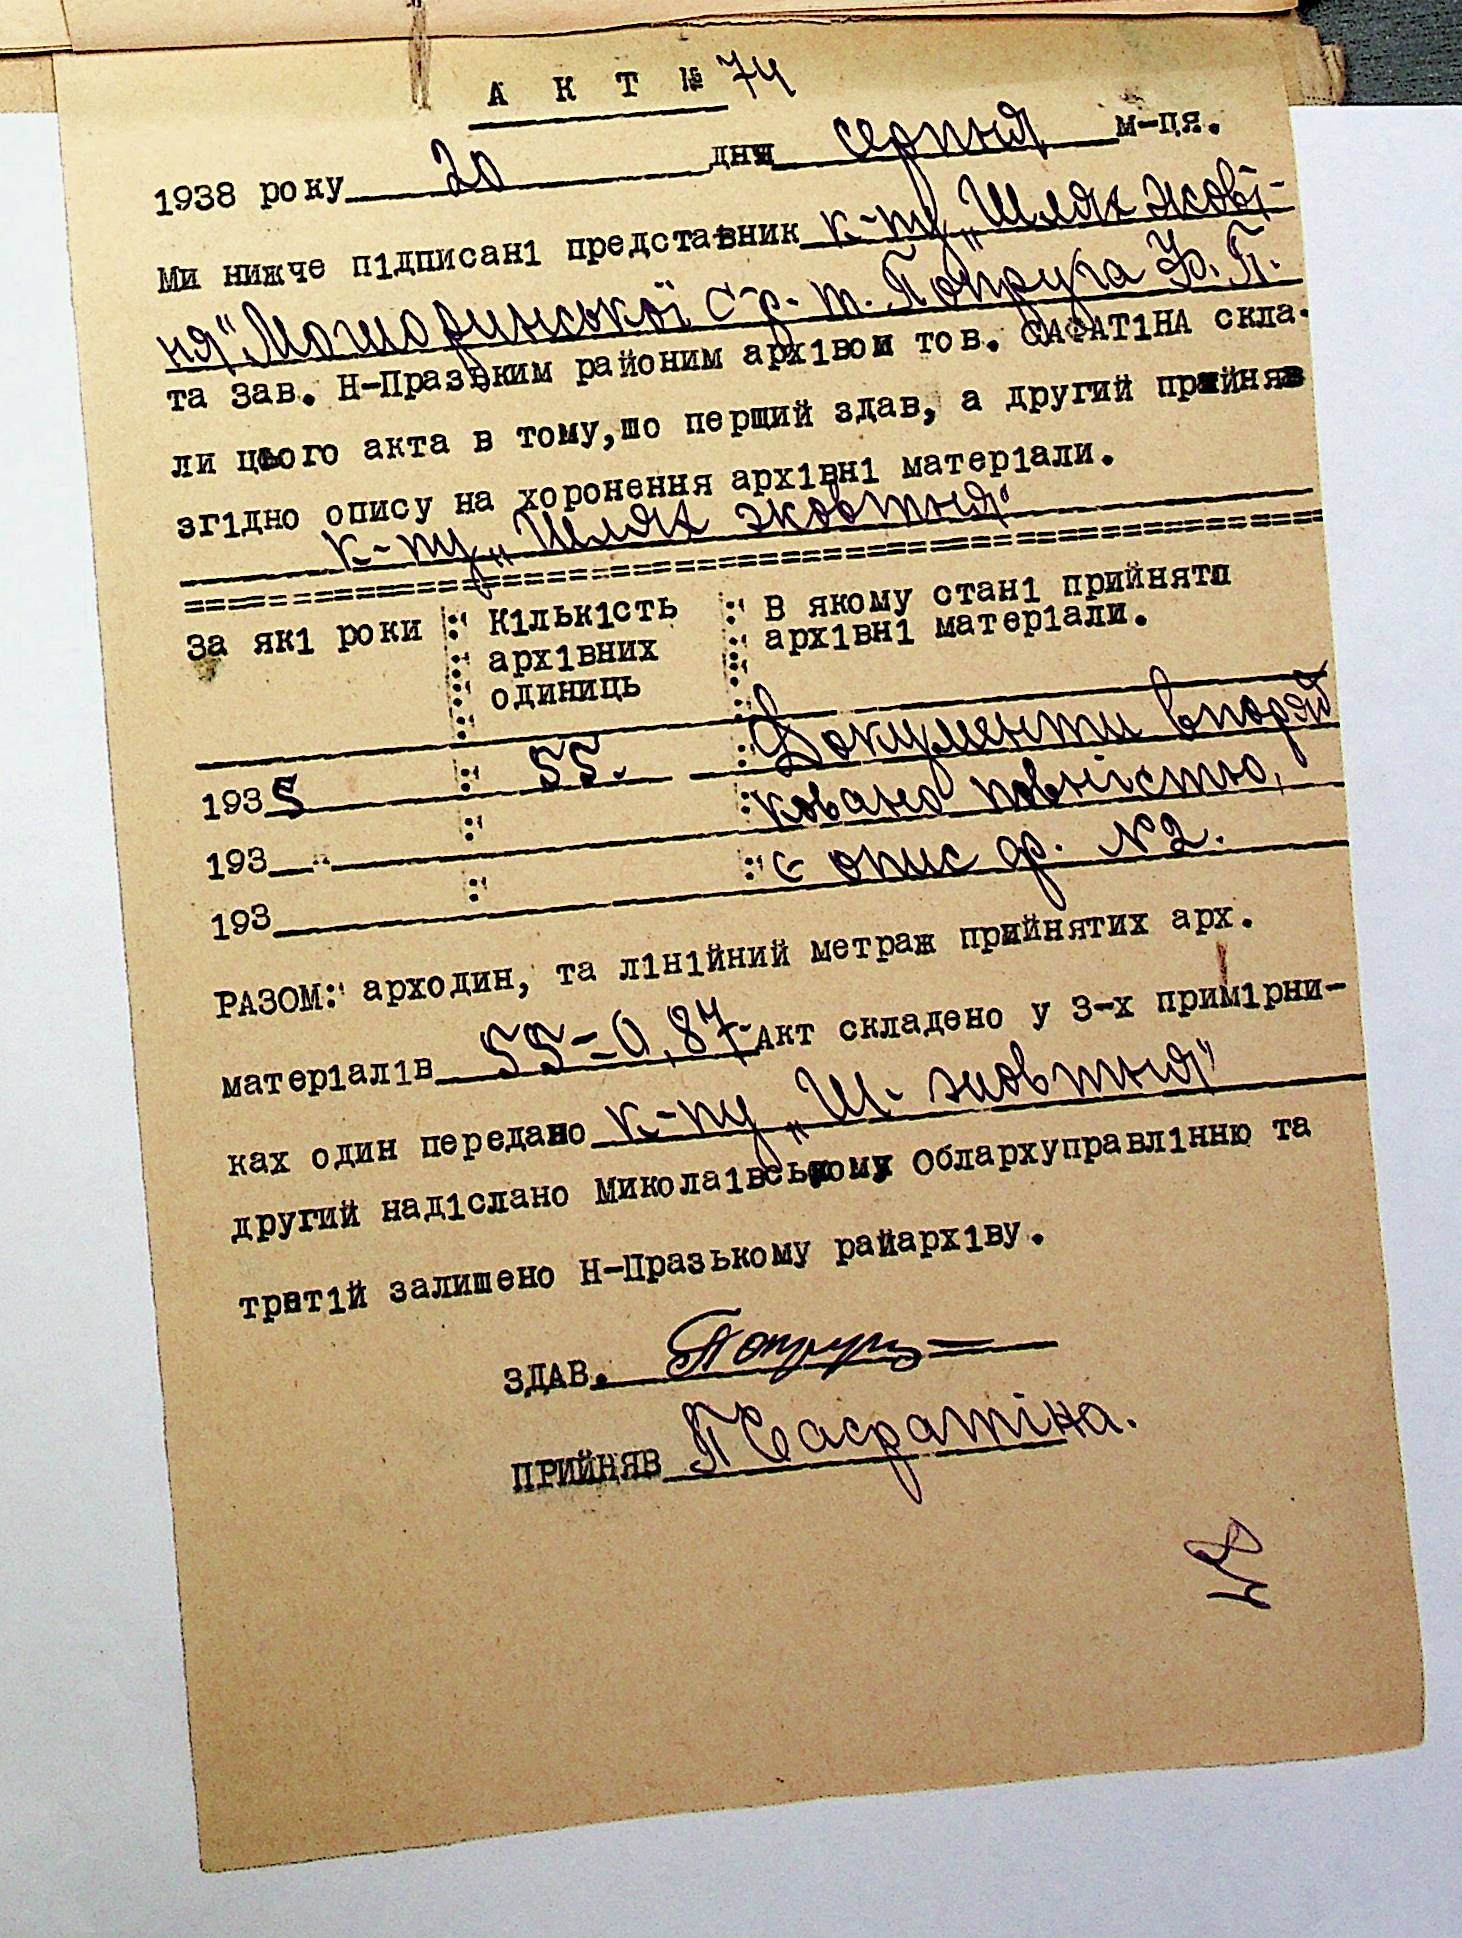 А К Т № 74
1938 року 20 дня серпня м-ця.
Ми нижче п1дписан1 представник к-пу „Шлях жовт-
ня" Мошоринської с-р. т. Попруга Ф. П.
та Зав. Н-Празьким районим арх1вом тов. САФАТ1НА скла-
ли цього акта в тому,шо перший здав, а другий прийняв
зг1дно опису на хоронення арх1вн1 матер1али.
к-пу „Шлях жовтня"
За як1 роки К1льк1сть арх1вних одиниць В якому стан1 прийнято арх1вн1 матер1али.
1935 55. Документи впоряд
193 " ковано повністю,
є опис ф. №2.
193
РАЗОМ: арходин, та л1н1йний метраж прийнятих арх.
матер1ал1в 55=0,87 Акт складено у 3-х прим1рни-
ках один передано к-пу „Ш- жовтня"
другий над1слано Микола1вському Обларxуправл1нню та
трет1й залишено Н-Празькому райарх1ву.
ЗДАВ. Попруга
ПРИЙНЯВ П Сафатіна.